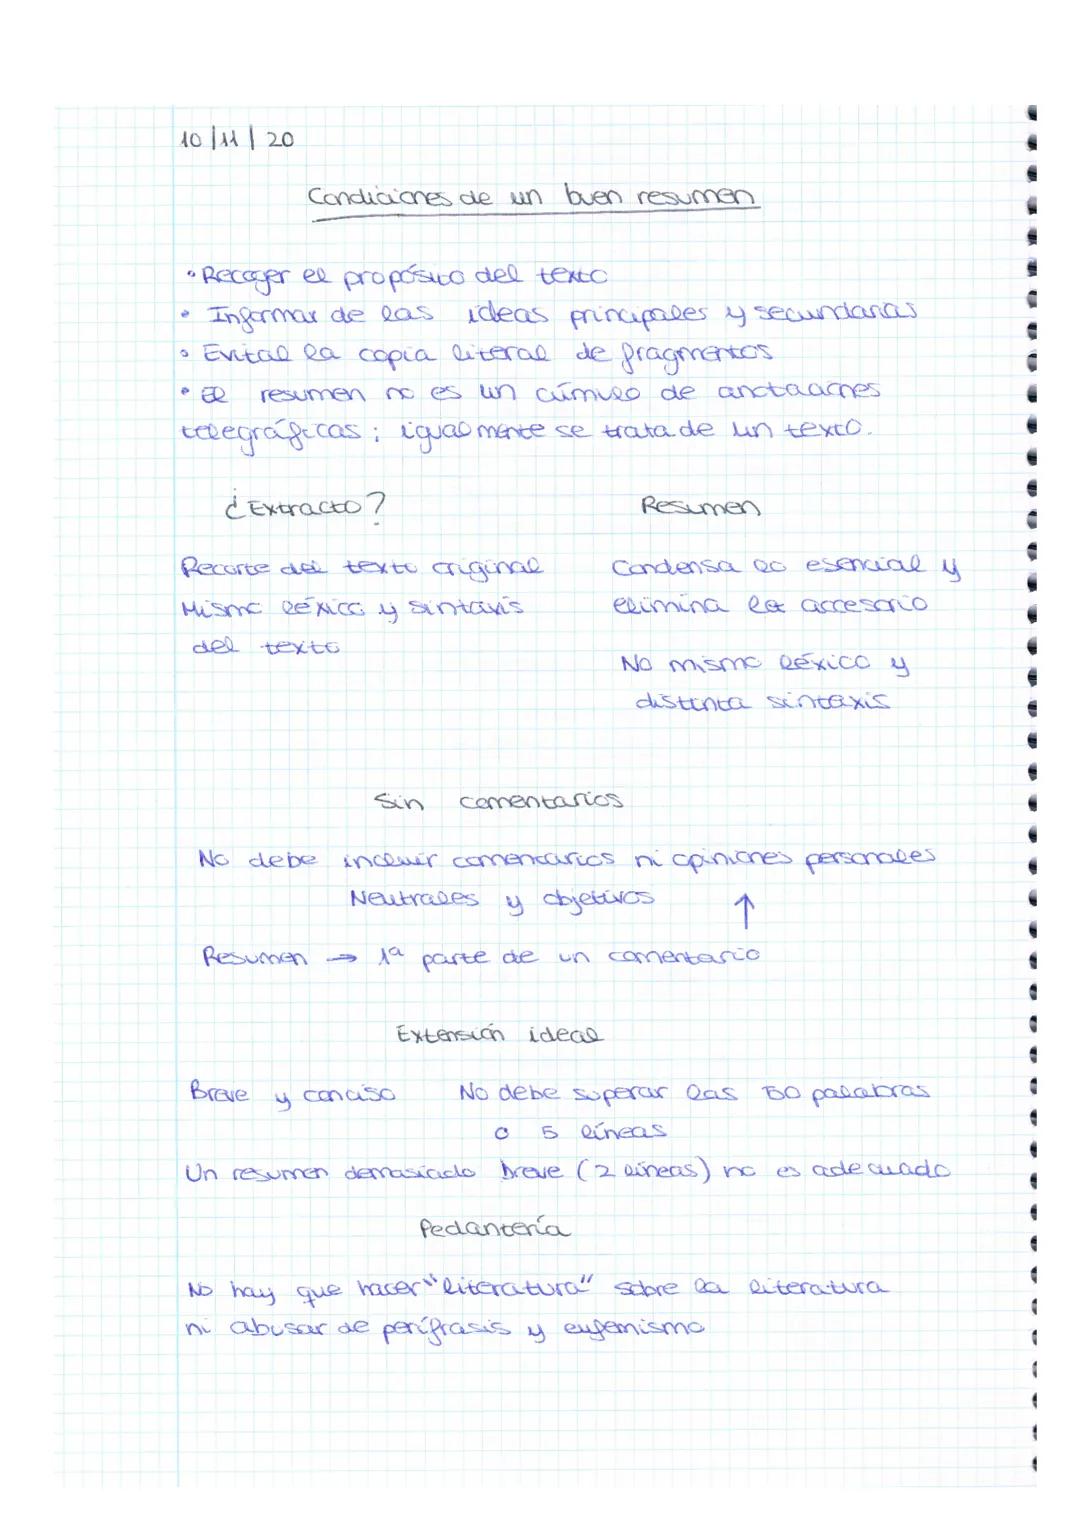 10/11/20
Condiciones de un buen resumen
• Recoger el propósito del texto
• Informar de las ideas principales y secundarias
• Evital la copia literal de fragmentos
• El resumen no es un cúmulo de anotaciones
telegráficas; igualmente se trata de un texto.
¿Extracto?
Recorte del texto original
Mismo léxico y sintaxis
del texto
Resumen
Condensa lo esencial y
elimina lo accesorio
No mismo léxico y
distinta sintaxis
Sin comentarios
No debe incluir comentarios ni opiniones personales
Neutrales y objetivos ↑
Resumen → 1ª parte de un comentario
Extensión ideal
Breve y conciso No debe superar las 50 palabras
o 5 líneas
Un resumen demasiado breve (2 líneas) no es adecuado
Pedantería
No hay que hacer "literatura" sobre la literatura
ni abusar de perífrasis y eufemismo